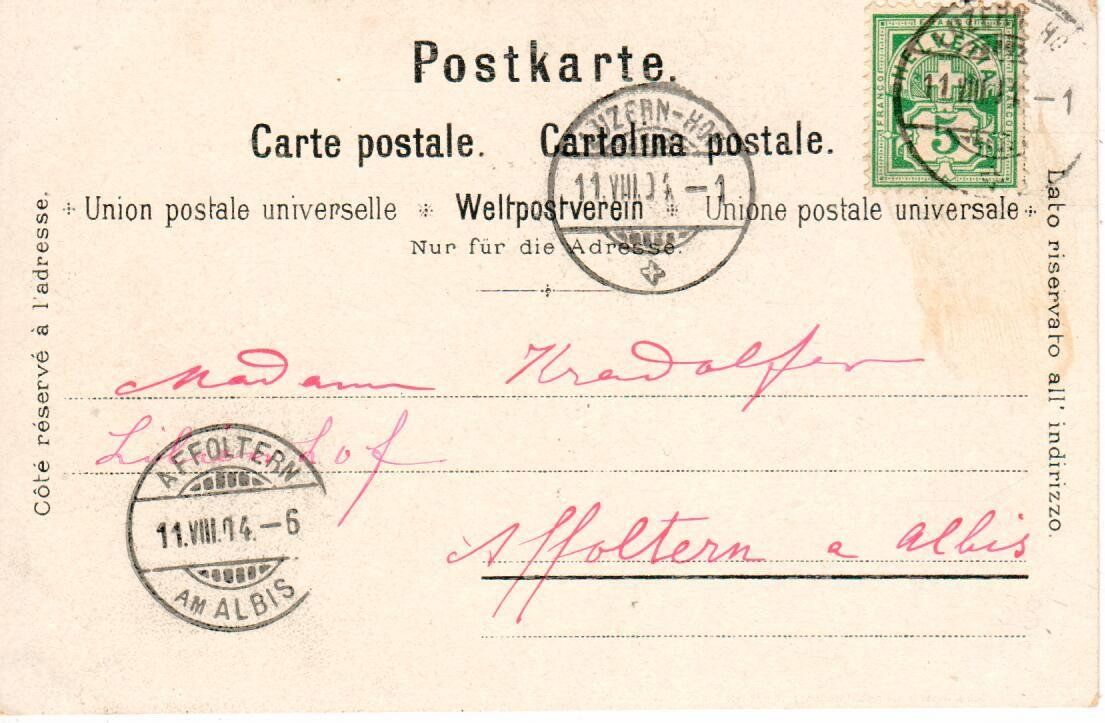 Postkarte.
Carte postale. Cartolina postale.
Union postale universelle * Weltpostverein * Unione postale universale
Nur für die Adresse.
Côté réservé à l'adresse.
Lato riservato all' indirizzo.
HELVETIA
FRANCO
FRANCO
5
11.VIII.
–1
LUZERN-HOF
11.VIII.04.–1
Madame Kradolfer
Lilienhof
Affoltern a Albis
AFFOLTERN
11.VIII.04.–6
AM ALBIS